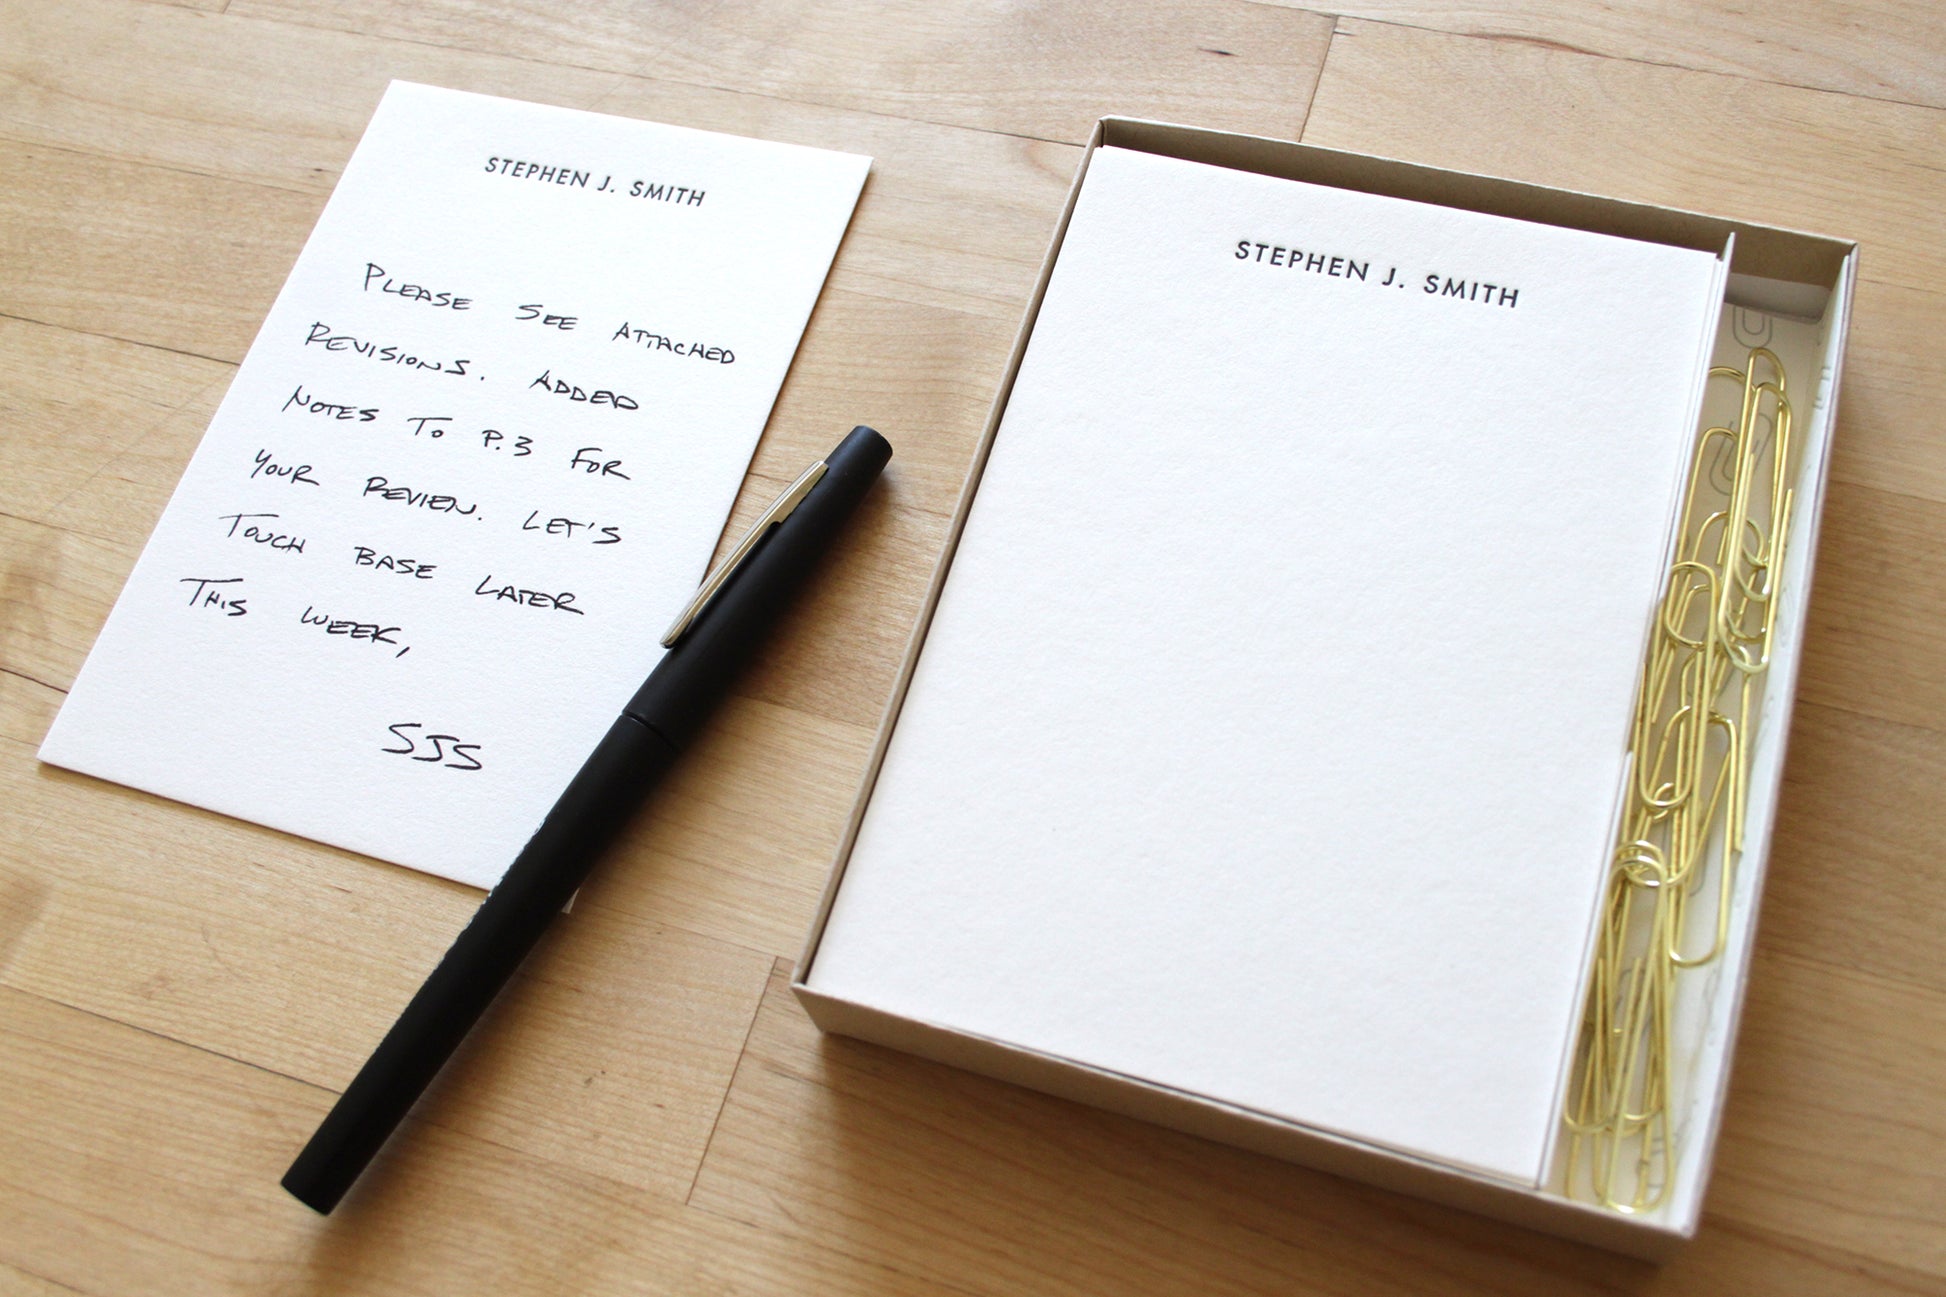 STEPHEN J. SMITH
PLEASE SEE ATTACHED
REVISIONS. ADDED
NOTES TO P.3 FOR
YOUR REVIEW. LET'S
TOUCH BASE LATER
THIS WEEK,
SJS
STEPHEN J. SMITH